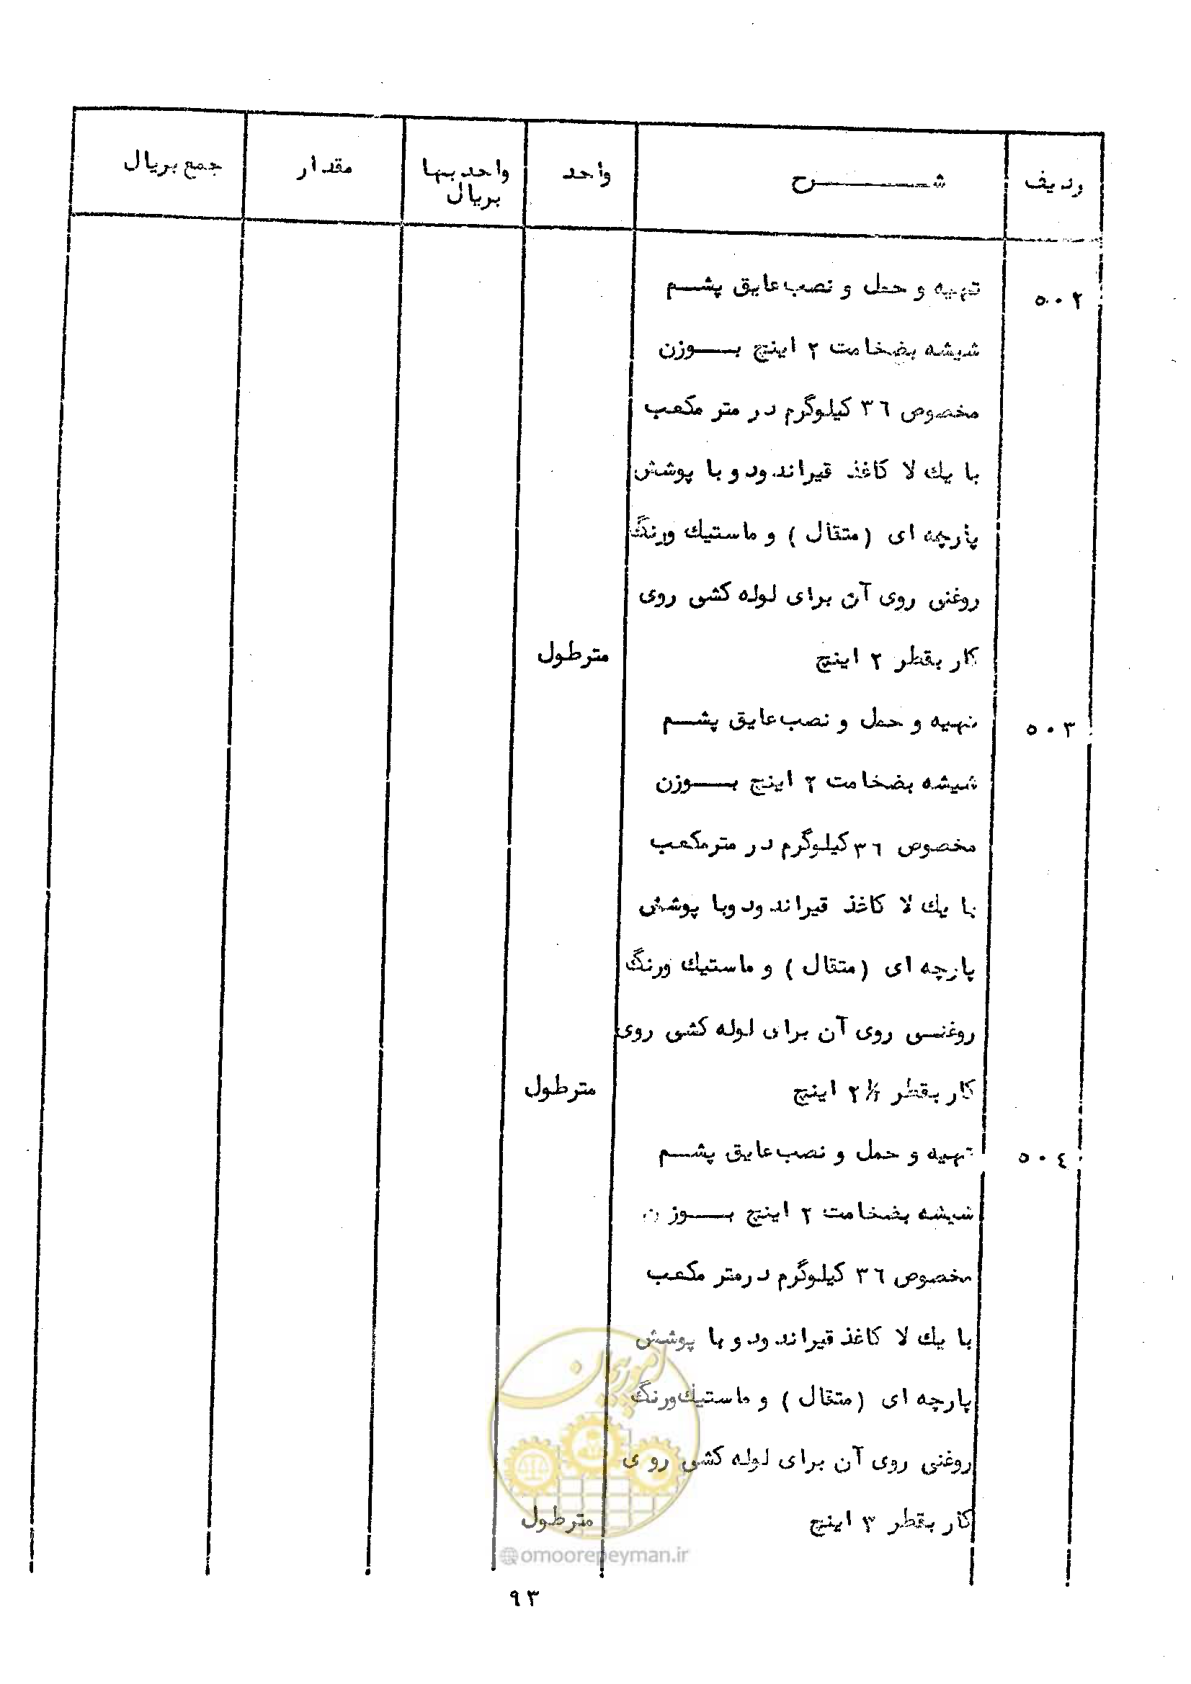 ردیف شرح واحد واحد بها بریال مقدار جمع بریال
٥٠٢ تهیه و حمل و نصب عایق پشم
شیشه بضخامت ٢ اینچ بوزن
مخصوص ٣٦ کیلوگرم در متر مکعب
با یك لا کاغذ قیراندود و با پوشش
پارچه ای (متقال) و ماستیك ورنگ
روغنی روی آن برای لوله کشی روی
کار بقطر ٢ اینچ مترطول
٥٠٣ تهیه و حمل و نصب عایق پشم
شیشه بضخامت ٢ اینچ بوزن
مخصوص ٣٦ کیلوگرم در مترمکعب
با یك لا کاغذ قیراندود وبا پوشش
پارچه ای (متقال) و ماستیك ورنگ
روغنی روی آن برای لوله کشی روی
کار بقطر ٢½ اینچ مترطول
٥٠٤ تهیه و حمل و نصب عایق پشم
شیشه بضخامت ٢ اینچ بوزن
مخصوص ٣٦ کیلوگرم درمتر مکعب
با یك لا کاغذ قیراندود و با پوشش
پارچه ای (متقال) و ماستیك ورنگ
روغنی روی آن برای لوله کشی روی
کار بقطر ٣ اینچ مترطول
امور پیمان
@omoorepeyman.ir
٩٣